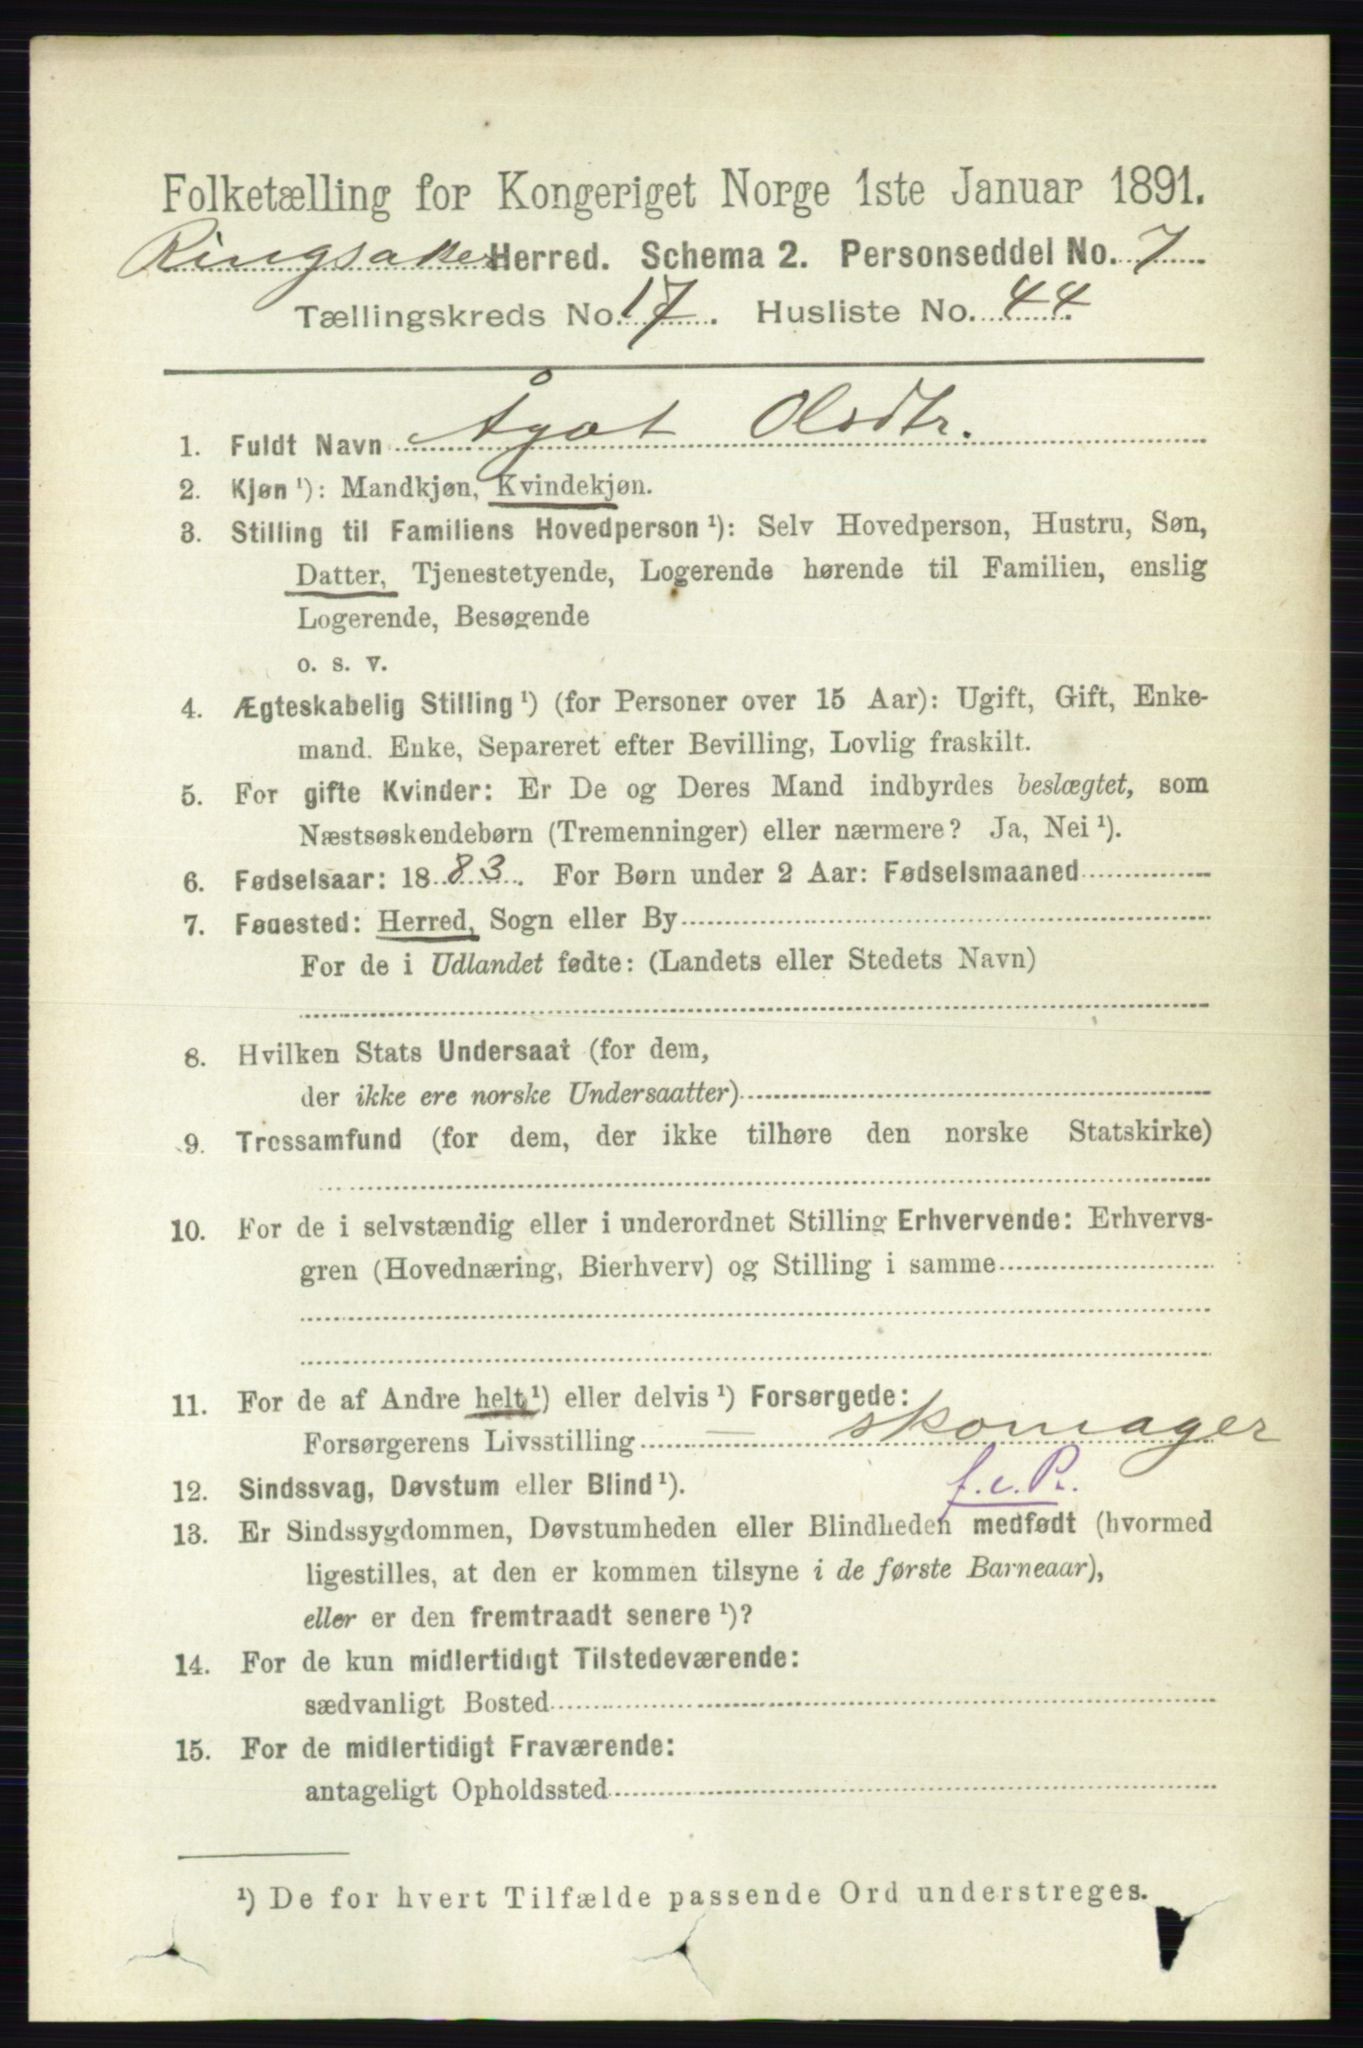 Folketælling for Kongeriget Norge 1ste Januar 1891.
Ringsaker Herred. Schema 2. Personseddel No. 7
Tællingskreds No. 17. Husliste No. 44.
1. Fuldt Navn Ågot Olsdtr.
2. Kjøn ¹): Mandkjøn, Kvindekjøn.
3. Stilling til Familiens Hovedperson ¹): Selv Hovedperson, Hustru, Søn,
Datter, Tjenestetyende, Logerende hørende til Familien, enslig
Logerende, Besøgende
o. s. v.
4. Ægteskabelig Stilling ¹) (for Personer over 15 Aar): Ugift, Gift, Enke-
mand. Enke, Separeret efter Bevilling, Lovlig fraskilt.
5. For gifte Kvinder: Er De og Deres Mand indbyrdes beslægtet, som
Næstsøskendebørn (Tremenninger) eller nærmere? Ja, Nei ¹).
6. Fødselsaar: 1883. For Børn under 2 Aar: Fødselsmaaned
7. Fødested: Herred, Sogn eller By
For de i Udlandet fødte: (Landets eller Stedets Navn)
8. Hvilken Stats Undersaat (for dem,
der ikke ere norske Undersaatter)
9. Trossamfund (for dem, der ikke tilhøre den norske Statskirke)
10. For de i selvstændig eller i underordnet Stilling Erhvervende: Erhvervs-
gren (Hovednæring, Bierhverv) og Stilling i samme
11. For de af Andre helt ¹) eller delvis ¹) Forsørgede:
Forsørgerens Livsstilling — skomager
f.c.P.
12. Sindssvag, Døvstum eller Blind ¹).
13. Er Sindssygdommen, Døvstumheden eller Blindheden medfødt (hvormed
ligestilles, at den er kommen tilsyne i de første Barneaar),
eller er den fremtraadt senere ¹)?
14. For de kun midlertidigt Tilstedeværende:
sædvanligt Bosted
15. For de midlertidigt Fraværende:
antageligt Opholdssted
¹) De for hvert Tilfælde passende Ord understreges.